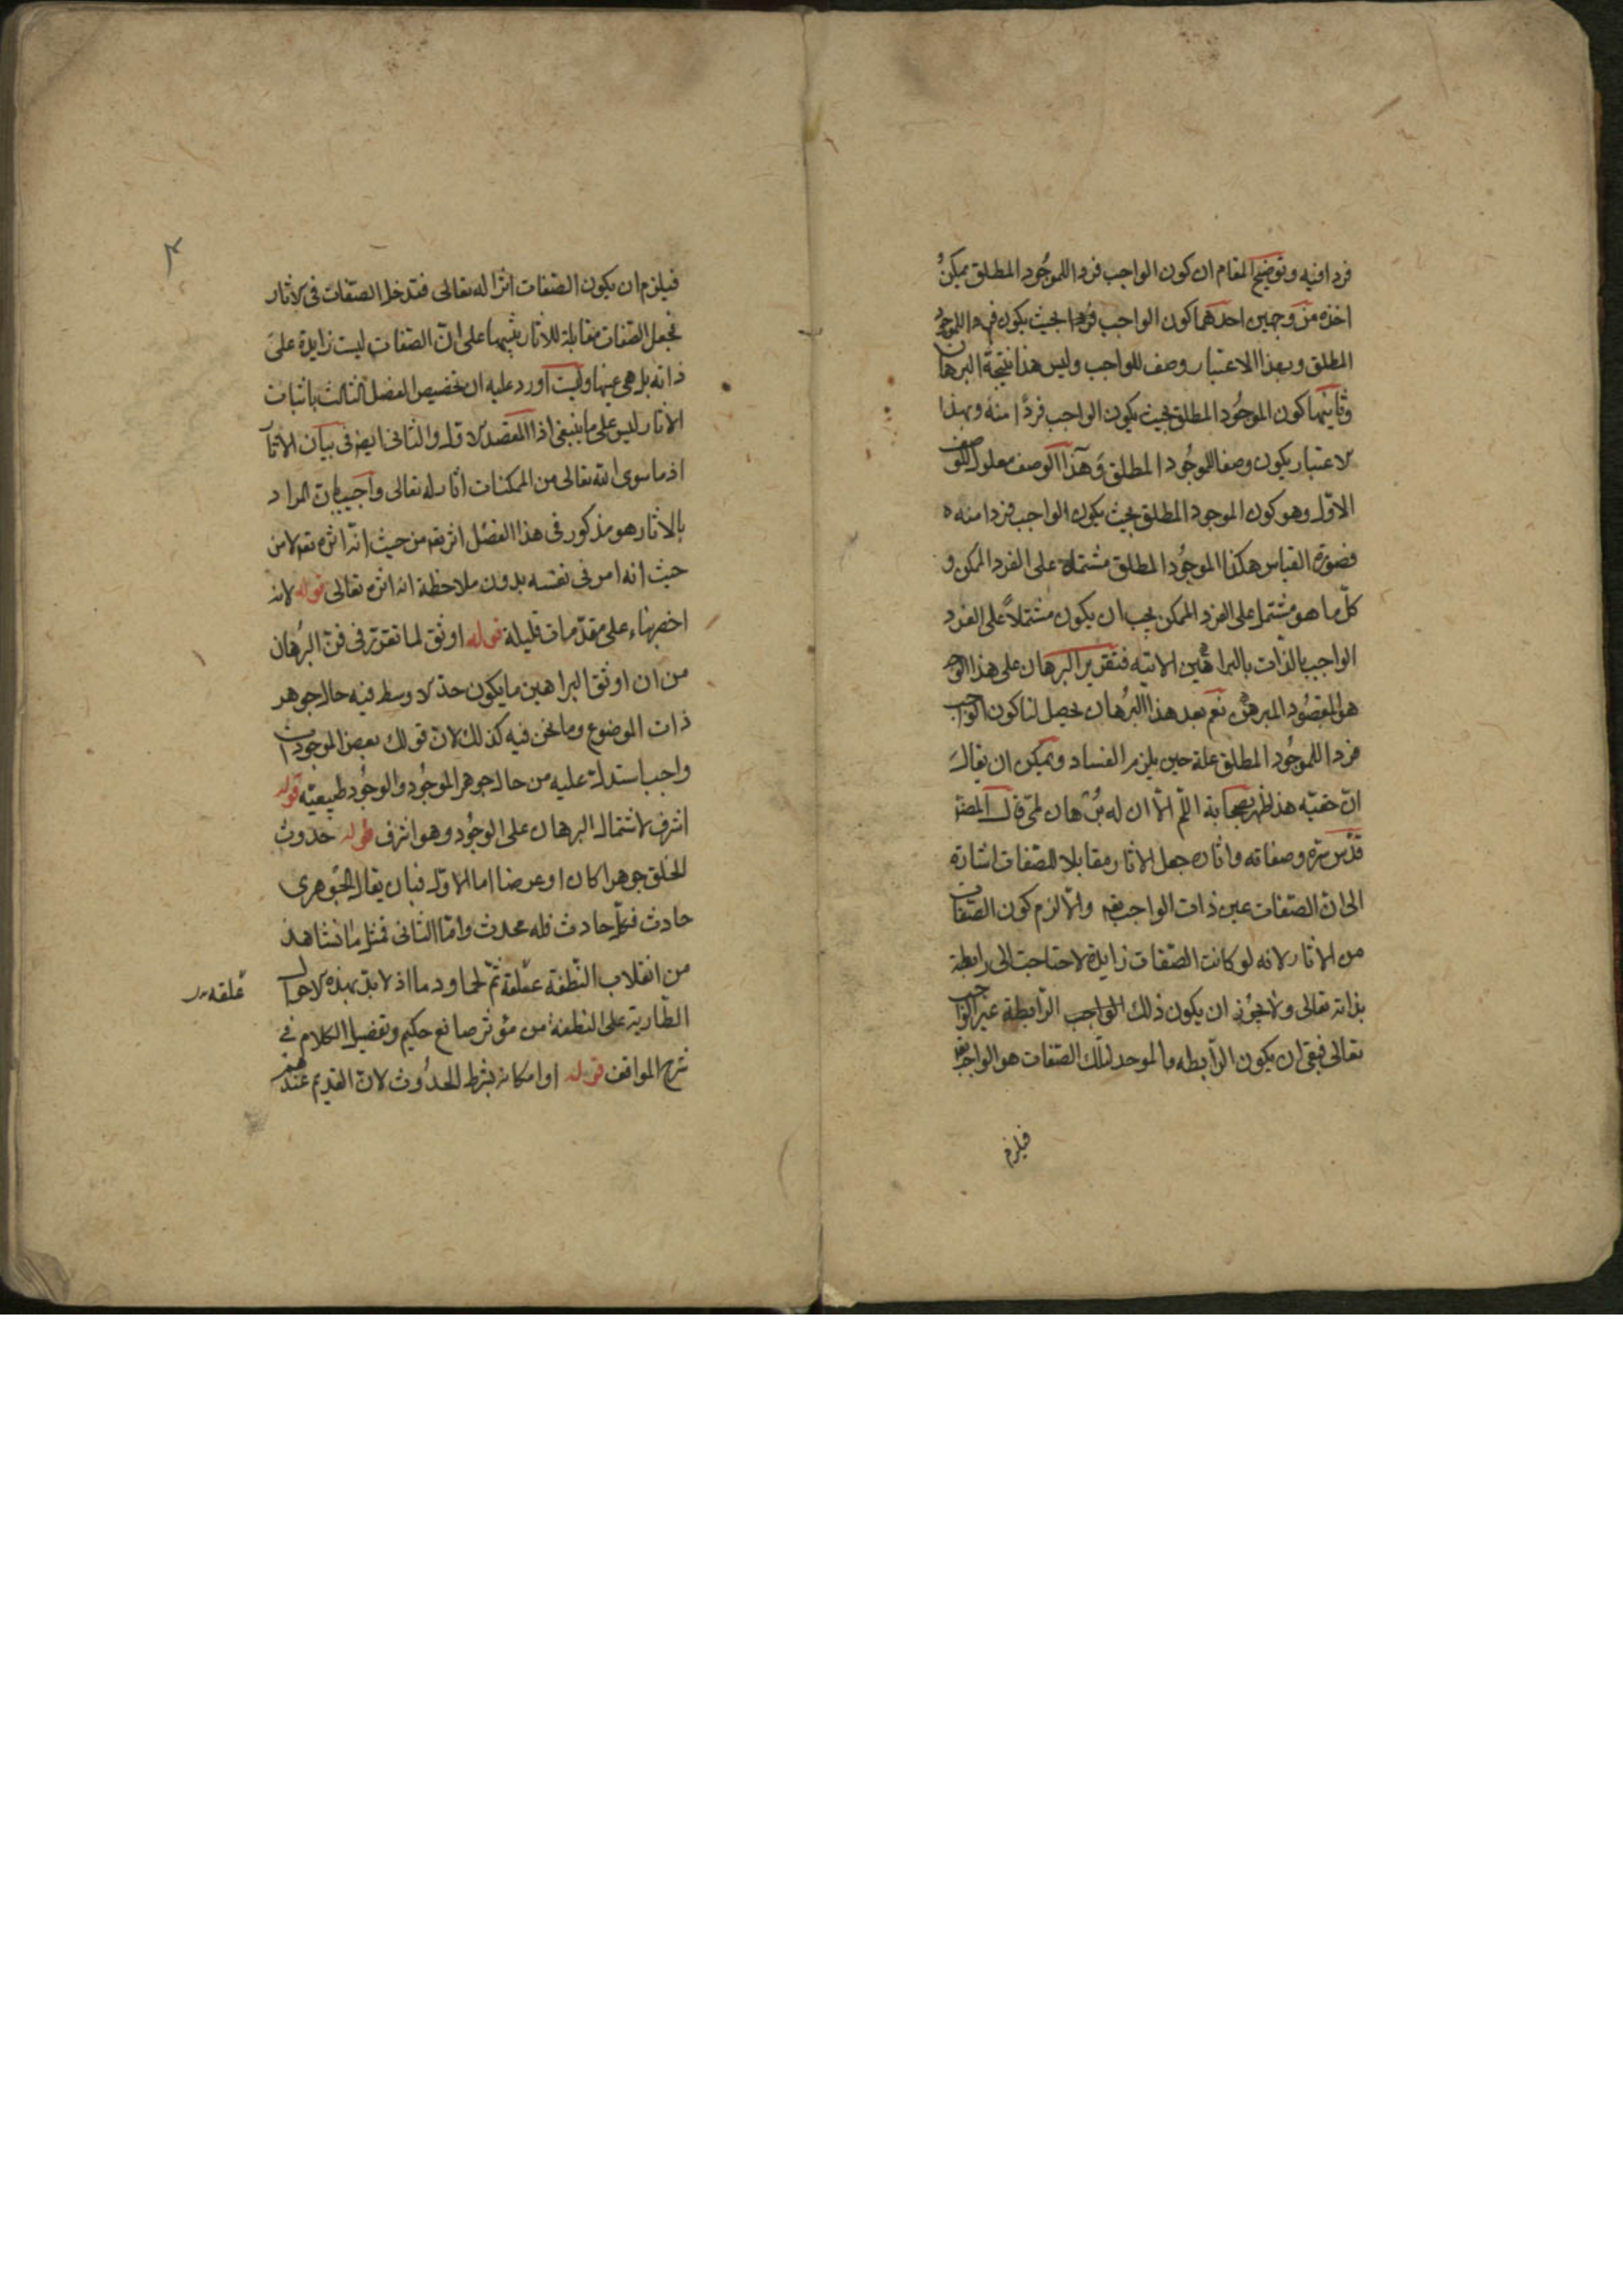 فردا فيه وتوضيح المقام ان كون الواجب فردا للموجود المطلق يمكن
اخذه من وجهين احدهما كون الواجب فردا بحيث يكون فردا للموجود
المطلق وبهذا الاعتبار وصف للواجب وليس هذا نتيجة البرهان
وثانيهما كون الموجود المطلق بحيث يكون الواجب فردا منه وبهذا
الاعتبار يكون وصفا للموجود المطلق وهذا الوصف معلول للوصف
الاول وهو كون الموجود المطلق بحيث يكون الواجب فردا منه
فصورة القياس هكذا الموجود المطلق مشتملة على الفرد الممكن و
كل ما هو مشتمل على الفرد الممكن يجب ان يكون مشتملا على الفرد
الواجب بالذات بالبراهين الانيه فتقرير البرهان على هذا الوجه
هو المقصود المبرهن نعم بعد هذا البرهان يحصل لنا كون الواجب
فردا للموجود المطلق علة حين يلزم الفساد ويمكن ان يقال
ان حقيه هذا اللم الا ان له برهان لمى قال المصنف
قدس سره وصفاته واثاره جعل الاثار مقابلا للصفات اشارة
الى ان الصفات عين ذات الواجب تعه والا لزم كون الصفات
من الاثار لانه لو كانت الصفات زايدة لاحتاجت الى رابطة
بذاته تعالى ولا يجوز ان يكون ذلك الواجب الرابطة غير الواجب
تعالى فبقى ان يكون الرابطه والموجد لتلك الصفات هو الواجب تعه
فيلزم
فيلزم ان يكون الصفات اثرا له تعالى فتدخل الصفات فى الاثار
فجعل الصفات مقابلة للاثار تنبيها على ان الصفات ليست زايدة على
ذاته بل هى عينها اورد عليه ان تخصيص الفصل الثالث باثبات
الاثار ليس على ما ينبغى اذ المقصد الاول والثانى ايضا فى بيان الاثار
اذ ما سوى الله تعالى من الممكنات اثار له تعالى واجيب بان المراد
بالاثار هو مذكور فى هذا الفصل اثر تعه من حيث انه اثره تعه لا من
حيث انه امر فى نفسه بدون ملاحظة انه اثره تعالى قوله لانه
اخصر بناء على مقدمات قليلة قوله اوثق لما تقرر فى فن البرهان
من ان اوثق البراهين ما يكون حد الاوسط فيه حال جوهر
ذات الموضوع وما نحن فيه كذلك لان قولك بعض الموجودات
واجب استدلال عليه من حال جوهر الموجود والوجود طبيعيته قوله
اشرف لاشتمال البرهان على الوجود وهو اشرف قوله حدوث
الخلق جوهرا كان او عرضا اما الاول فبان يقال الجوهرى
حادث فكل حادث فله محدث واما الثانى فمثل ما نشاهد
من انقلاب النطفة علقة ثم لحما ودما اذ لا بد بهذه الاحوال
علقه
الطارية على النطفة من مؤثر صانع حكيم وتفصيل الكلام فى
شرح المواقف قوله او امكانه بشرط الحدوث لان القديم عندهم